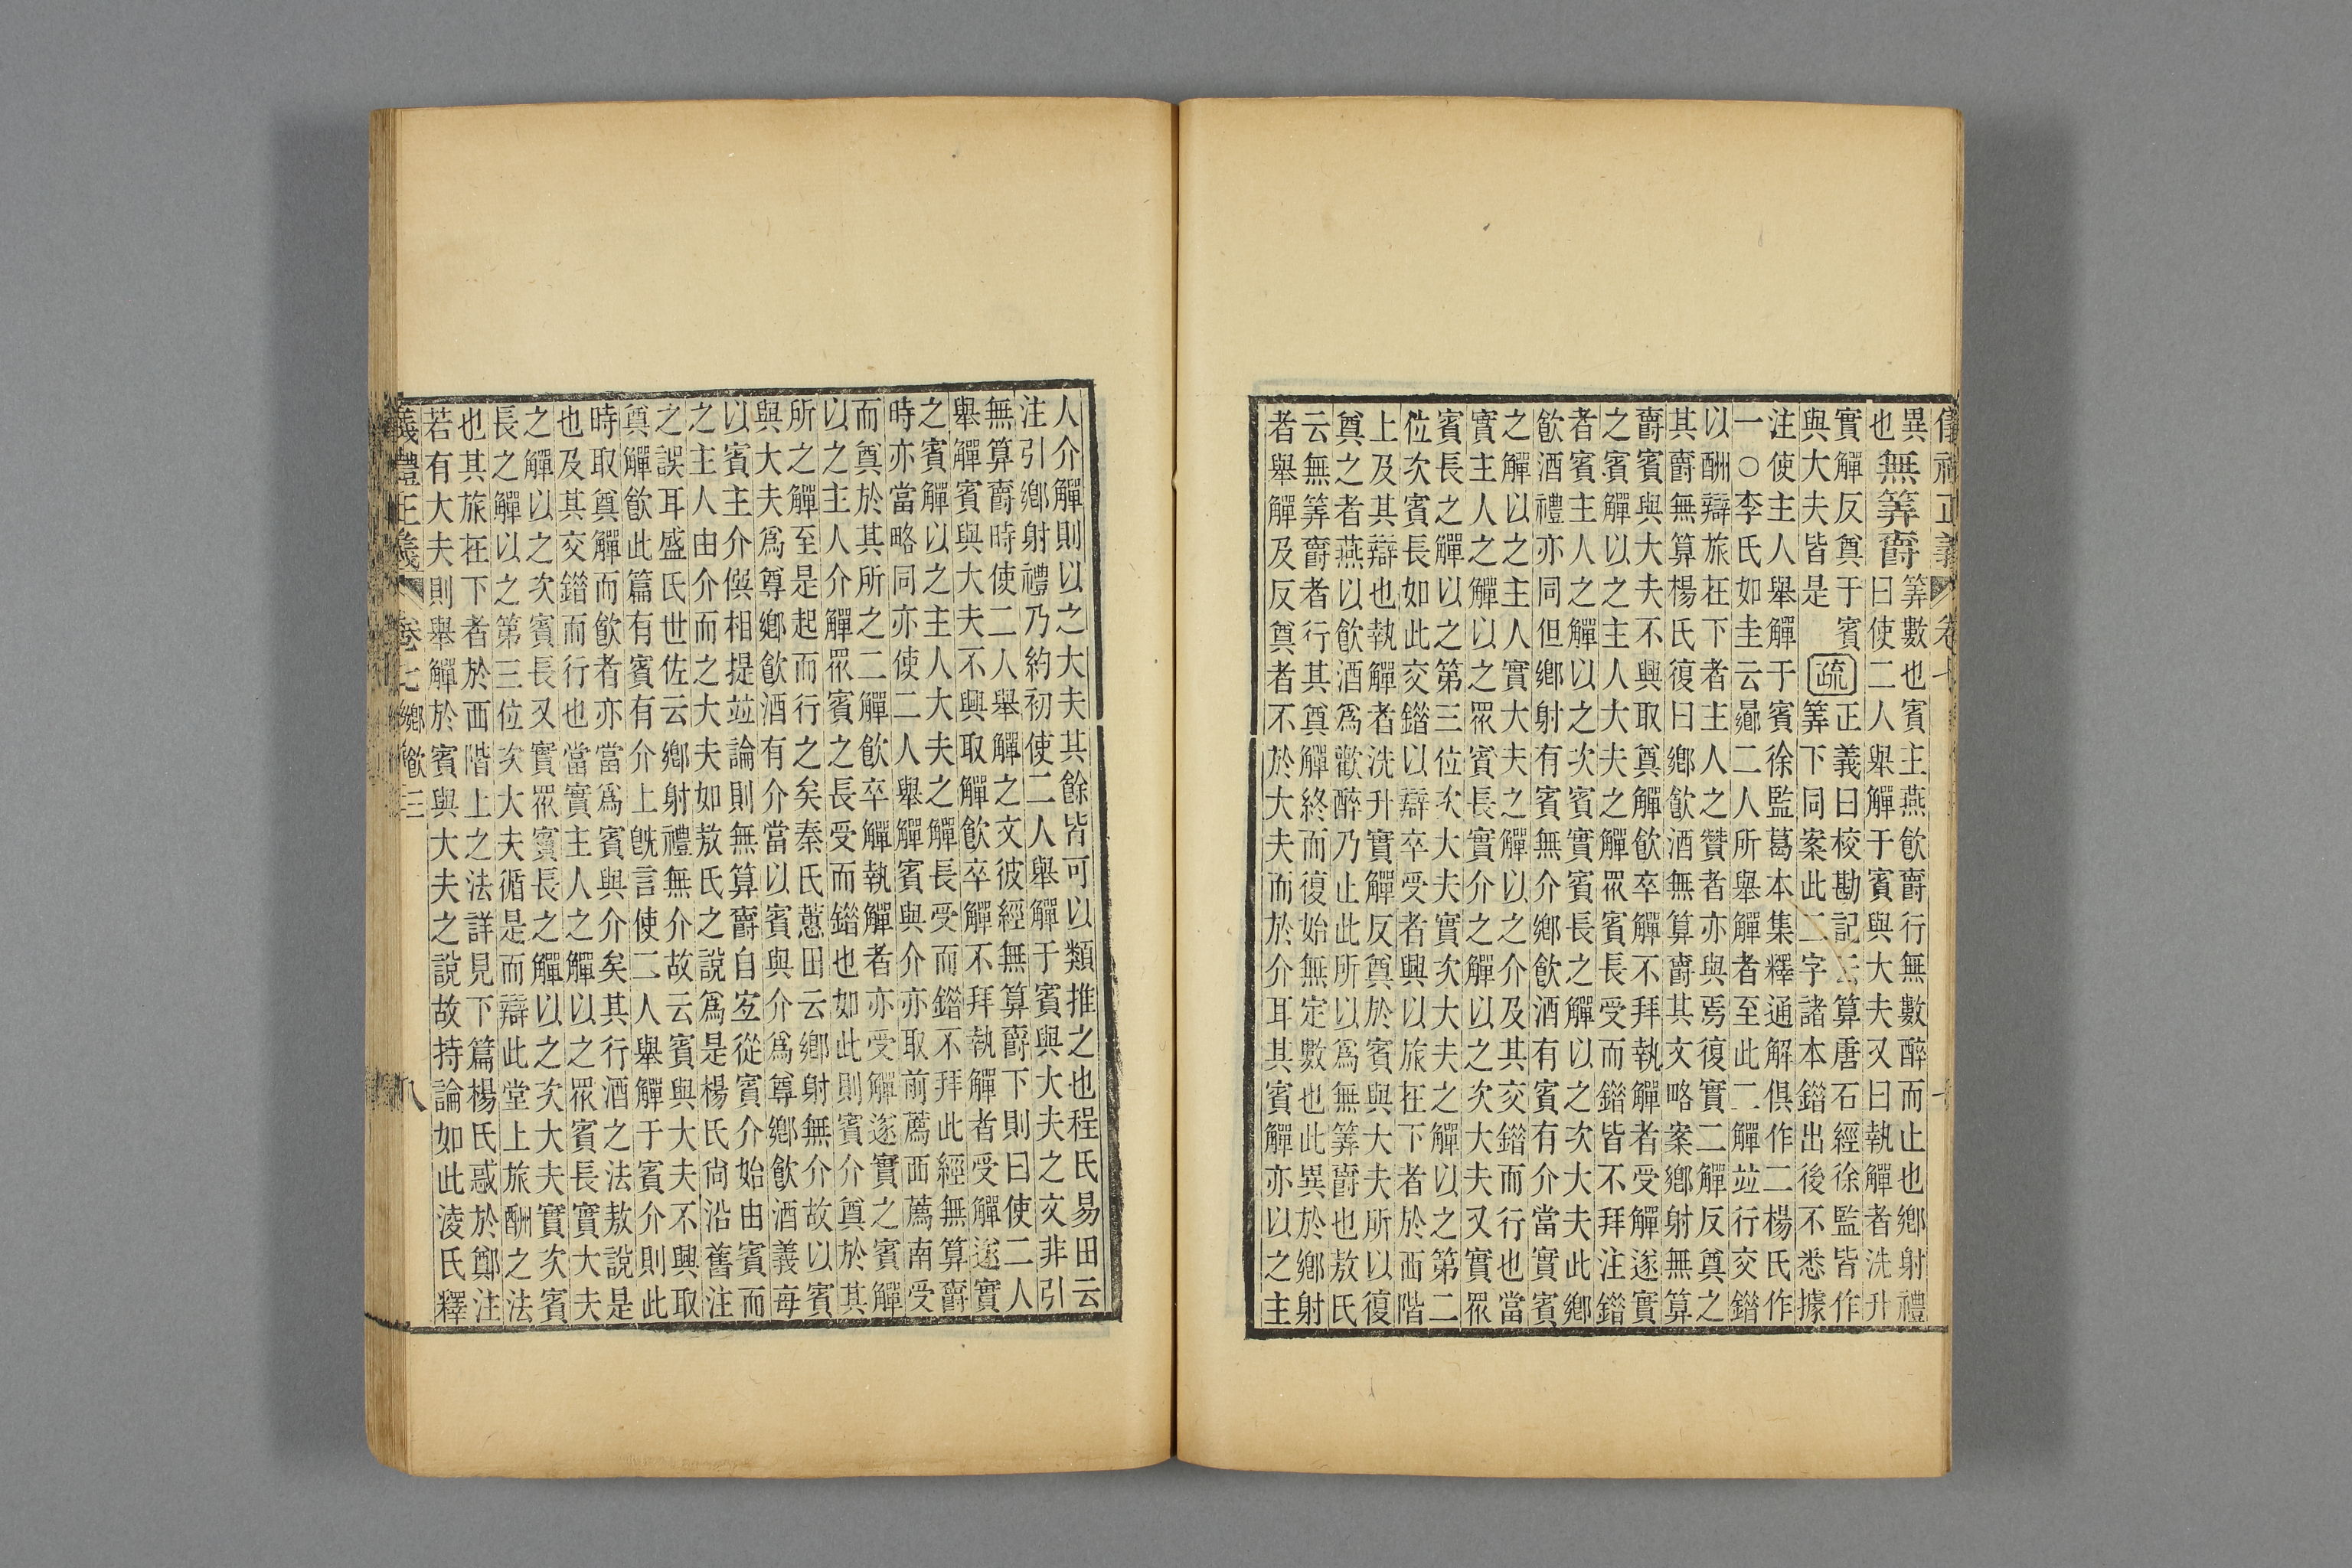 儀禮正義 卷七
異
也
無筭爵
筭數也賓主燕飲爵行無數醉而止也鄉射禮
曰使二人舉觶于賓與大夫又曰執觶者洗升
實觶反奠于賓
與大夫皆是
疏
正義曰校勘記云算唐石經徐監皆作
筭下同案此二字諸本錯出後不悉據
注使主人舉觶于賓徐監葛本集釋通解俱作二楊氏作
一○李氏如圭云曏二人所舉觶者至此二觶竝行交錯
以酬辯旅在下者主人之贊者亦與焉復實二觶反奠之
其爵無算楊氏復曰鄉飲酒無算爵其文略案鄉射無算
爵賓與大夫不興取奠觶飲卒觶不拜執觶者受觶遂實
之賓觶以之主人大夫之觶眾賓長受而錯皆不拜注錯
者賓主人之觶以之次賓實賓長之觶以之次大夫此鄉
飲酒禮亦同但鄉射有賓無介鄉飲酒有賓有介當實賓
之觶以之主人實大夫之觶以之介及其交錯而行也當
實主人之觶以之眾賓長實介之觶以之次大夫又實眾
賓長之觶以之第三位次大夫實次大夫之觶以之第二
位次賓長如此交錯以辯卒受者興以旅在下者於西階
上及其辯也執觶者洗升實觶反奠於賓與大夫所以復
奠之者燕以飲酒爲歡醉乃止此所以爲無筭爵也敖氏
云無筭爵者行其奠觶終而復始無定數也此異於鄉射
者舉觶及反奠者不於大夫而於介耳其賓觶亦以之主
人介觶則以之大夫其餘皆可以類推之也程氏易田云
注引鄉射禮乃約初使二人舉觶于賓與大夫之文非引
無算爵時使二人舉觶之文彼經無算爵下則曰使二人
舉觶賓與大夫不興取觶飲卒觶不拜執觶者受觶遂實
之賓觶以之主人大夫之觶長受而錯不拜此經無算爵
時亦當略同亦使二人舉觶賓與介亦取前薦西薦南受
而奠於其所之二觶飲卒觶執觶者亦受觶遂實之賓觶
以之主人介觶眾賓之長受而錯也如此則賓介奠於其
所之觶至是起而行之矣秦氏蕙田云鄉射無介故以賓
與大夫爲尊鄉飲酒有介當以賓與介爲尊鄉飲酒義每
以賓主介僎相提竝論則無算爵自宜從賓介始由賓而
之主人由介而之大夫如敖氏之說爲是楊氏尚沿舊注
之誤耳盛氏世佐云鄉射禮無介故云賓與大夫不興取
奠觶飲此篇有賓有介上既言使二人舉觶于賓介則此
時取奠觶而飲者亦當爲賓與介矣其行酒之法敖說是
也及其交錯而行也當實主人之觶以之眾賓長實大夫
之觶以之次賓長又實眾賓長之觶以之次大夫實次賓
長之觶以之第三位次大夫循是而辯此堂上旅酬之法
也其旅在下者於西階上之法詳見下篇楊氏惑於鄭注
若有大夫則舉觶於賓與大夫之說故持論如此淩氏釋
儀禮正義 卷七鄉飲三 八